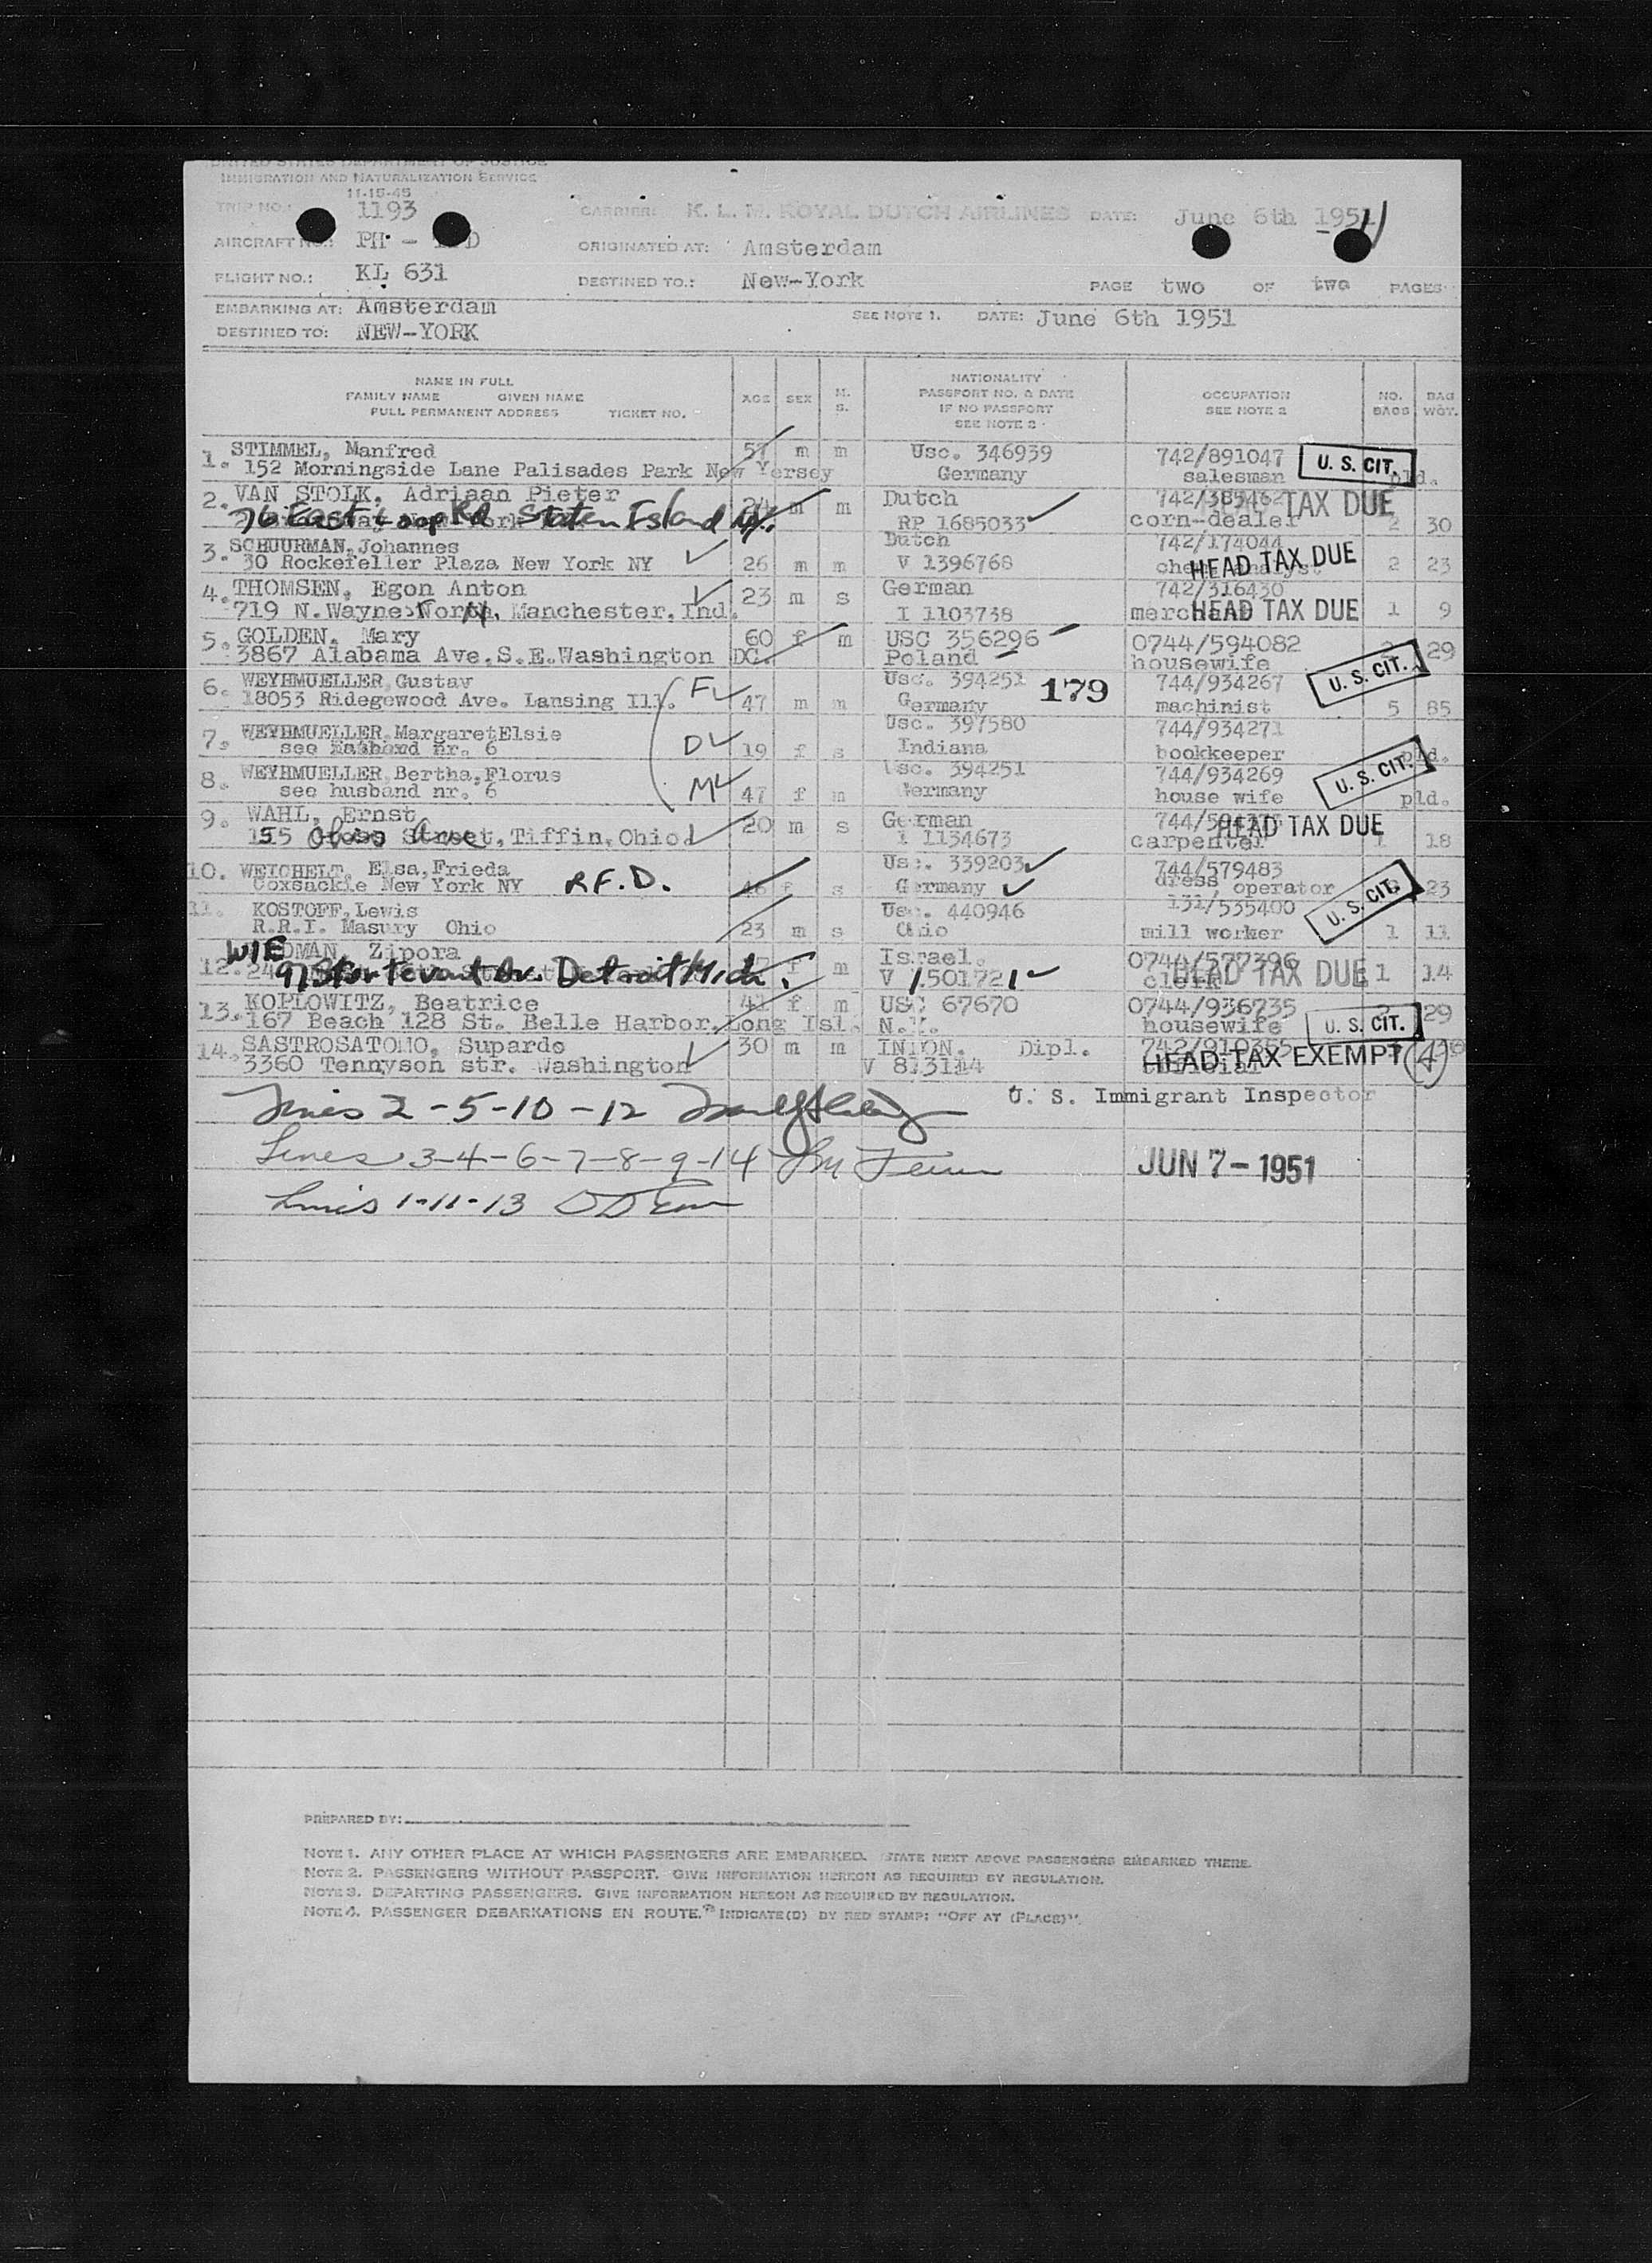 UNITED STATES DEPARTMENT OF JUSTICE
IMMIGRATION AND NATURALIZATION SERVICE
11-15-45
TRIP NO.: 1193 CARRIER: K. L. M. ROYAL DUTCH AIRLINES DATE: June 6th 1951
AIRCRAFT NO.: PH - D ORIGINATED AT: Amsterdam
FLIGHT NO.: KL 631 DESTINED TO.: New-York PAGE two OF two PAGES
EMBARKING AT: Amsterdam SEE NOTE 1. DATE: June 6th 1951
DESTINED TO: NEW-YORK
NAME IN FULL
FAMILY NAME GIVEN NAME
FULL PERMANENT ADDRESS TICKET NO.
AGE SEX M. S.
NATIONALITY
PASSPORT NO. & DATE
IF NO PASSPORT
SEE NOTE 2
OCCUPATION
SEE NOTE 2
NO. BAGS BAG WGT.
1. STIMMEL, Manfred 57 m m Usc. 346939 742/891047 U. S. CIT.
152 Morningside Lane Palisades Park New Yersey Germany salesman pld.
2. VAN STOLK, Adriaan Pieter 24 m m Dutch 742/385462 TAX DUE
76 East Loop Rd Staten Island NY. RP 1685033 corn-dealer 2 30
3. SCHUURMAN, Johannes Dutch 742/174044
30 Rockefeller Plaza New York NY 26 m m V 1396768 HEAD TAX DUE 2 23
4. THOMSEN, Egon Anton 23 m s German 742/316430
719 N. Wayne North, Manchester, Ind. I 1103738 merchant HEAD TAX DUE 1 9
5. GOLDEN, Mary 60 f m USC 356296 0744/594082
3867 Alabama Ave. S.E. Washington DC. Poland housewife 2 29 U. S. CIT.
6. WEYHMUELLER, Gustav F Usc. 394251 179 744/934267
18053 Ridegewood Ave. Lansing Ill. 47 m m Germany machinist 5 85
7. WEYHMUELLER, Margaret Elsie D Usc. 397580 744/934271
see husband nr. 6 19 f s Indiana bookkeeper pld.
8. WEYHMUELLER, Bertha, Florus M Usc. 394251 744/934269 U. S. CIT.
see husband nr. 6 47 f m Germany house wife pld.
9. WAHL, Ernst 20 m s German HEAD TAX DUE
Street, Tiffin, Ohio I 1134673 carpenter 1 18
10. WEICHELT, Elsa, Frieda Usc. 339203 744/579483
Coxsackie New York NY R.F.D. 46 f s Germany dress operator 23
11. KOSTOFF, Lewis Usc. 440946 131/535400 U. S. CIT.
R.R.I. Masury Ohio 23 m s Ohio mill worker 1 11
12. WIEDMAN, Zipora f m Israel. 0744/577396
91 Stortevant Av. Detroit Mich. V 1501721 clerk HEAD TAX DUE 1 14
13. KOPLOWITZ, Beatrice 41 f m USC 67670 0744/936735
167 Beach 128 St. Belle Harbor. Long Isl. N.Y. housewife U. S. CIT. 29
14. SASTROSATOMO, Supardo 30 m m INDON. Dipl. 742/910355
3360 Tennyson str. Washington HEAD TAX EXEMPT (4)
Lines 2-5-10-12 U. S. Immigrant Inspector
Lines 3-4-6-7-8-9-14 JUN 7- 1951
Lines 1-11-13
PREPARED BY:
NOTE 1. ANY OTHER PLACE AT WHICH PASSENGERS ARE EMBARKED. STATE NEXT ABOVE PASSENGERS EMBARKED THERE.
NOTE 2. PASSENGERS WITHOUT PASSPORT. GIVE INFORMATION HEREON AS REQUIRED BY REGULATION.
NOTE 3. DEPARTING PASSENGERS. GIVE INFORMATION HEREON AS REQUIRED BY REGULATION.
NOTE 4. PASSENGER DEBARKATIONS EN ROUTE. INDICATE(D) BY RED STAMP: "OFF AT (PLACE)".